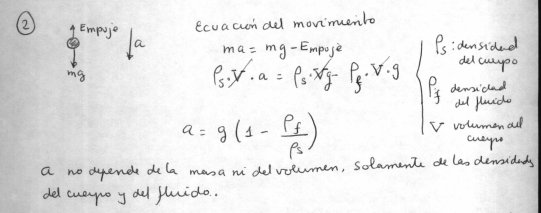 ② Empuje ecuación del movimiento
a ma = mg - Empuje
mg ρs·V·a = ρs·Vg - ρf·V·g
ρs: densidad del cuerpo
ρf densidad del fluido
V volumen del cuerpo
a = g (1 - ρf/ρs)
a no depende de la masa ni del volumen, solamente de las densidades
del cuerpo y del fluido..